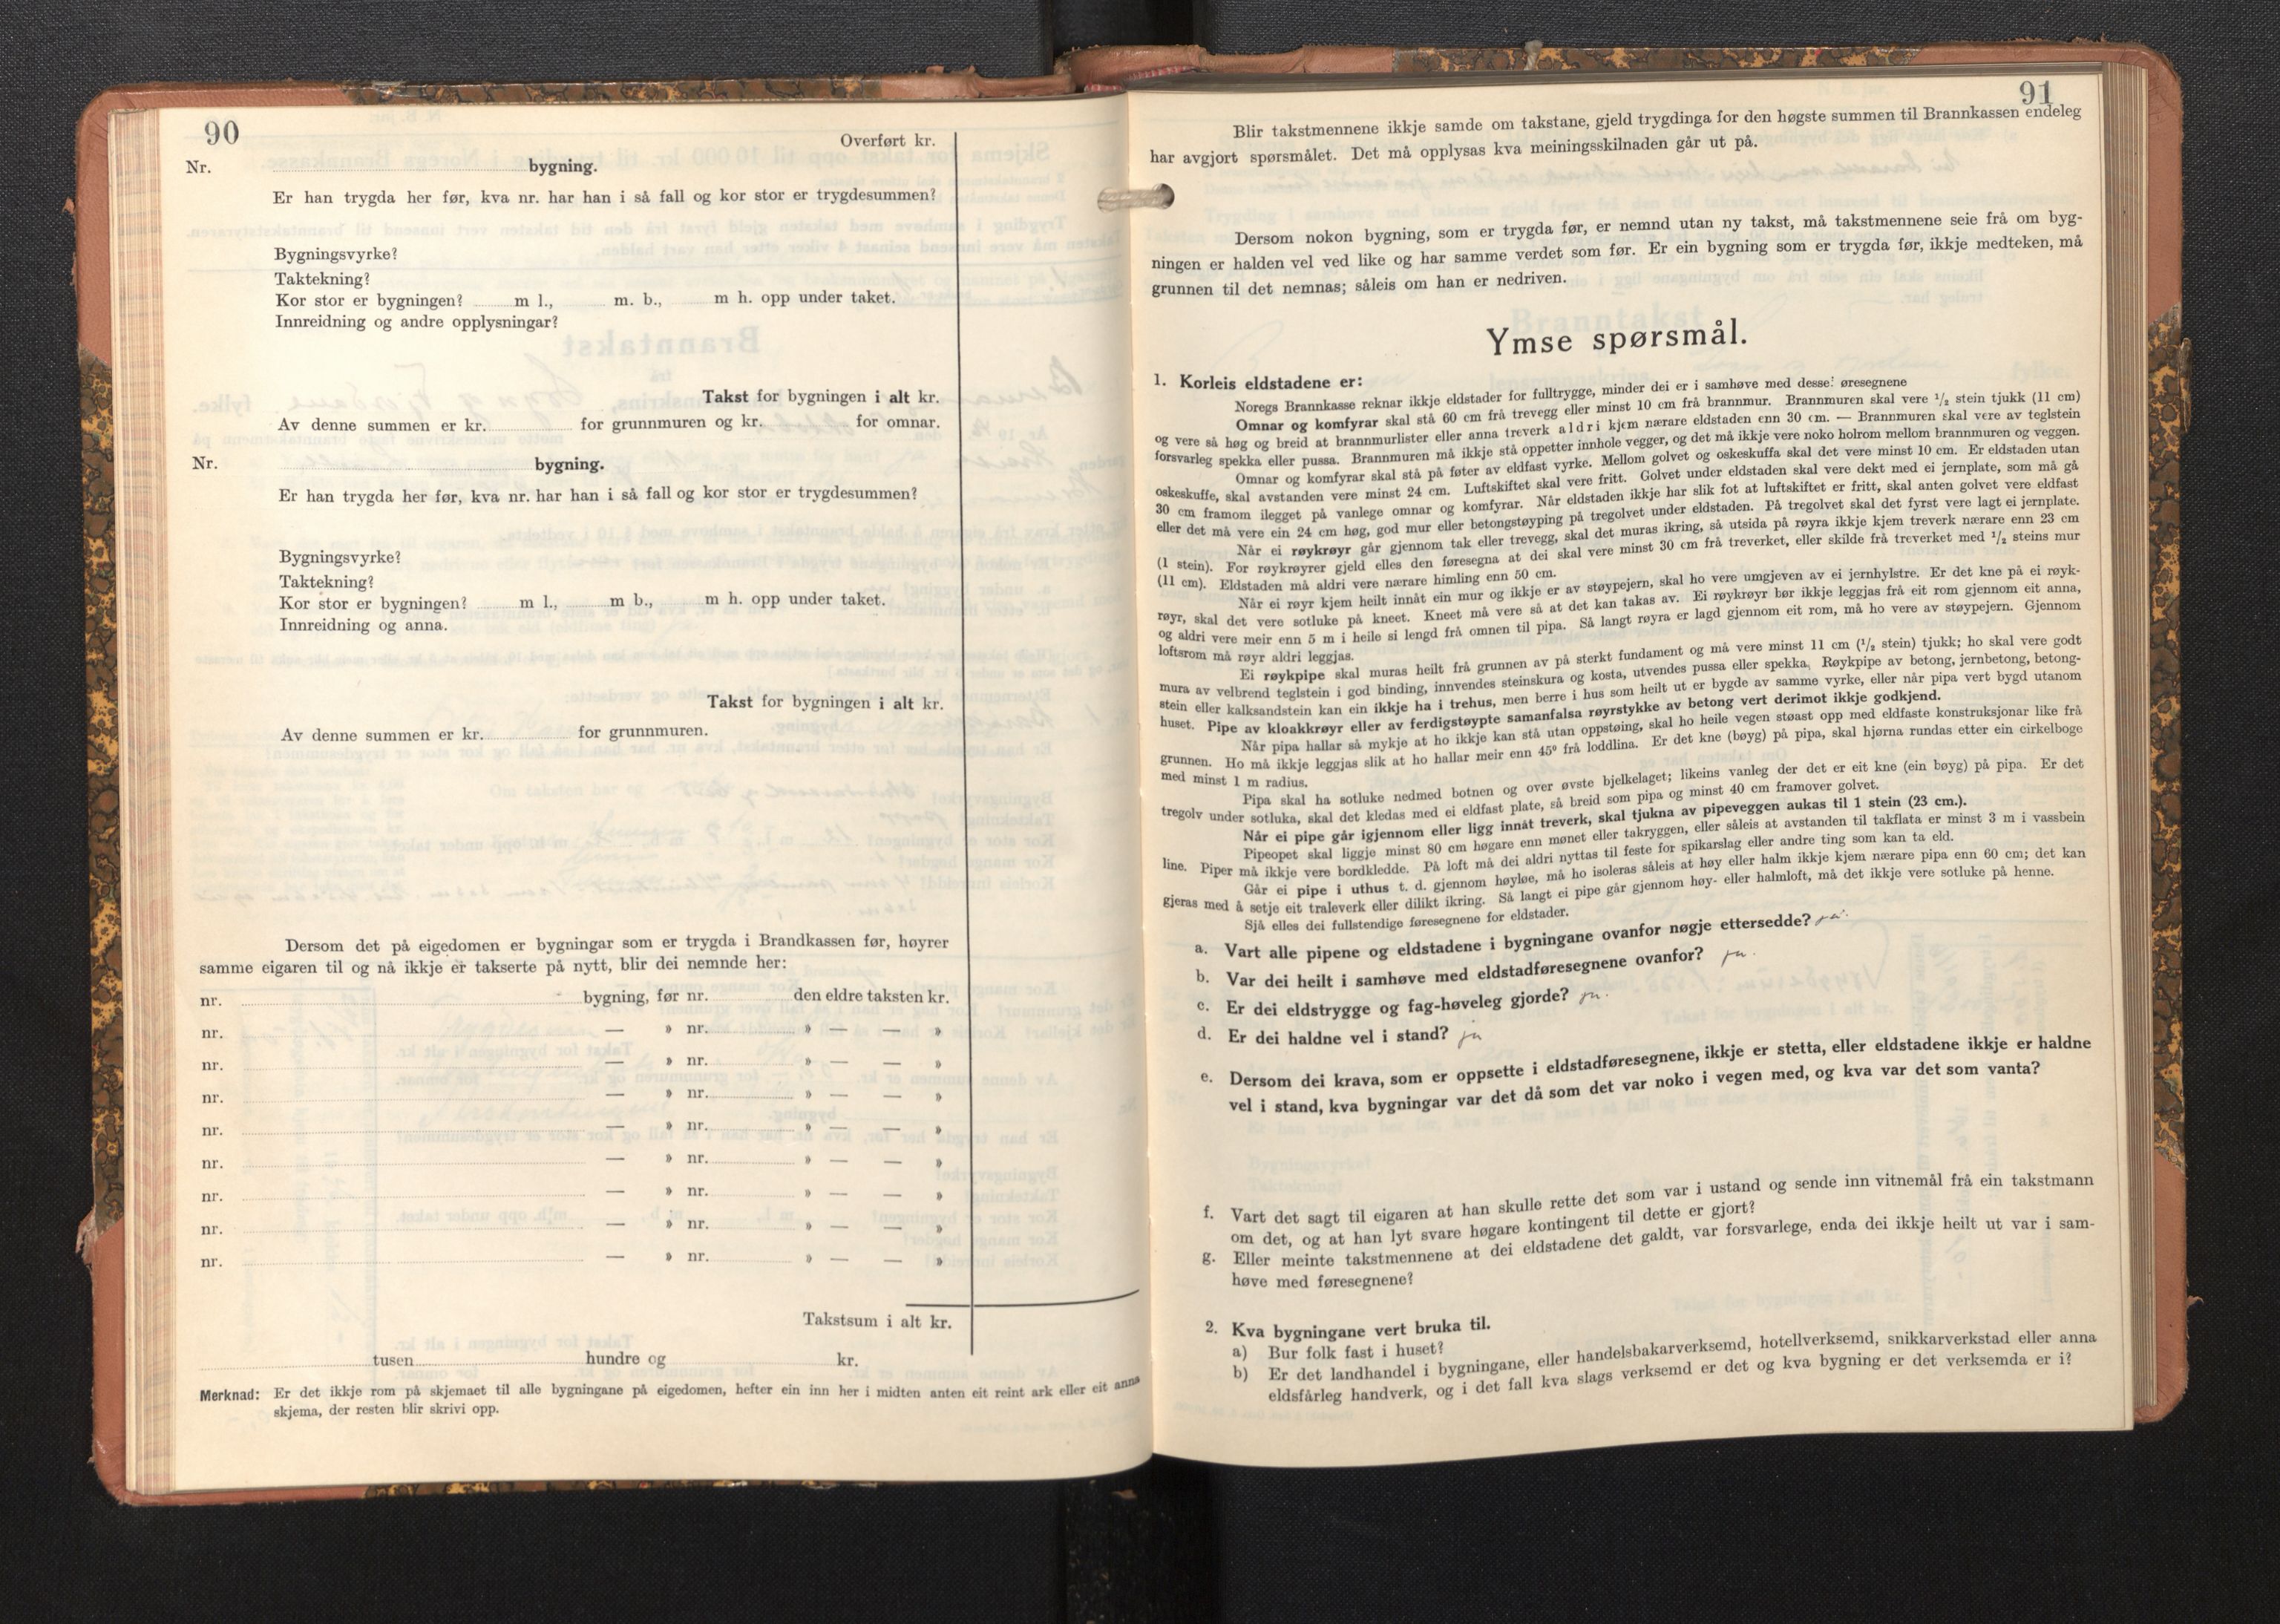 90
Overført kr.
Nr. bygning.
Er han trygda her før, kva nr. har han i så fall og kor stor er trygdesummen?
Bygningsvyrke?
Taktekning?
Kor stor er bygningen? m l., m. b., m h. opp under taket.
Innreidning og andre opplysningar?
Takst for bygningen i alt kr.
Av denne summen er kr. for grunnmuren og kr. for omnar.
Nr. bygning.
Er han trygda her før, kva nr. har han i så fall og kor stor er trygdesummen?
Bygningsvyrke?
Taktekning?
Kor stor er bygningen? m l., m b., m h. opp under taket.
Innreidning og anna.
Takst for bygningen i alt kr.
Av denne summen er kr. for grunnmuren.
Dersom det på eigedomen er bygningar som er trygda i Brandkassen før, høyrer
samme eigaren til og nå ikkje er takserte på nytt, blir dei nemnde her:
nr. bygning, før nr. den eldre taksten kr.
nr. — » nr. » — — »
nr. — » nr. » — — »
nr. — » nr. » — — »
nr. — » nr. » — — »
nr. — » nr. » — — »
nr. — » nr. » — — »
nr. — » nr. » — — »
nr. — » nr. » — — »
Takstsum i alt kr.
tusen hundre og kr.
Merknad: Er det ikkje rom på skjemaet til alle bygningane på eigedomen, hefter ein inn her i midten anten eit reint ark eller eit anna
skjema, der resten blir skrivi opp.
91
Blir takstmennene ikkje samde om takstane, gjeld trygdinga for den høgste summen til Brannkassen endeleg
har avgjort spørsmålet. Det må opplysas kva meiningsskilnaden går ut på.
Dersom nokon bygning, som er trygda før, er nemnd utan ny takst, må takstmennene seie frå om byg-
ningen er halden vel ved like og har samme verdet som før. Er ein bygning som er trygda før, ikkje medteken, må
grunnen til det nemnas; såleis om han er nedriven.
Ymse spørsmål.
1. Korleis eldstadene er:
Noregs Brannkasse reknar ikkje eldstader for fulltrygge, minder dei er i samhøve med desse: øresegnene
Omnar og komfyrar skal stå 60 cm frå trevegg eller minst 10 cm frå brannmur. Brannmuren skal vere 1/2 stein tjukk (11 cm)
og vere så høg og breid at brannmurlister eller anna treverk aldri kjem nærare eldstaden enn 30 cm. — Brannmuren skal vere av teglstein
forsvarleg spekka eller pussa. Brannmuren må ikkje stå oppetter innhole vegger, og det må ikkje vere noko holrom mellom brannmuren og veggen.
Omnar og komfyrar skal stå på føter av eldfast vyrke. Mellom golvet og oskeskuffa skal det vere minst 10 cm. Er eldstaden utan
oskeskuffe, skal avstanden vere minst 24 cm. Luftskiftet skal vere fritt. Golvet under eldstaden skal vere dekt med ei jernplate, som må gå
30 cm framom ilegget på vanlege omnar og komfyrar. Når eldstaden ikkje har slik fot at luftskiftet er fritt, skal anten golvet vere eldfast
eller det må vere ein 24 cm høg, god mur eller betongstøyping på tregolvet under eldstaden. På tregolvet skal det fyrst vere lagt ei jernplate.
Når ei røykrøyr går gjennom tak eller trevegg, skal det muras ikring, så utsida på røyra ikkje kjem treverk nærare enn 23 cm
(1 stein). For røykrøyrer gjeld elles den føresegna at dei skal vere minst 30 cm frå treverket, eller skilde frå treverket med 1/2 steins mur
(11 cm). Eldstaden må aldri vere nærare himling enn 50 cm.
Når ei røyr kjem heilt innåt ein mur og ikkje er av støypejern, skal ho vere umgjeven av ei jernhylstre. Er det kne på ei røyk-
røyr, skal det vere sotluke på kneet. Kneet må vere så at det kan takas av. Ei røykrøyr bør ikkje leggjas frå eit rom gjennom eit anna,
og aldri vere meir enn 5 m i heile si lengd frå omnen til pipa. Så langt røyra er lagd gjennom eit rom, må ho vere av støypejern. Gjennom
loftsrom må røyr aldri leggjas.
Ei røykpipe skal muras heilt frå grunnen av på sterkt fundament og må vere minst 11 cm (1/2 stein) tjukk; ho skal vere godt
mura av velbrend teglstein i god binding, innvendes steinskura og kosta, utvendes pussa eller spekka. Røykpipe av betong, jernbetong, betong-
stein eller kalksandstein kan ein ikkje ha i trehus, men berre i hus som heilt ut er bygde av samme vyrke, eller når pipa vert bygd utanom
huset. Pipe av kloakkrøyr eller av ferdigstøypte samanfalsa røyrstykke av betong vert derimot ikkje godkjend.
Når pipa hallar så mykje at ho ikkje kan stå utan oppstøing, skal ho heile vegen støast opp med eldfaste konstruksjonar like frå
grunnen. Ho må ikkje leggjas slik at ho hallar meir enn 45° frå loddlina. Er det kne (bøyg) på pipa, skal hjørna rundas etter ein cirkelboge
med minst 1 m radius.
Pipa skal ha sotluke nedmed botnen og over øvste bjelkelaget; likeins vanleg der det er eit kne (ein bøyg) på pipa. Er det
tregolv under sotluka, skal det kledas med ei eldfast plate, så breid som pipa og minst 40 cm framover golvet.
Når ei pipe går igjennom eller ligg innåt treverk, skal tjukna av pipeveggen aukas til 1 stein (23 cm.).
Pipeopet skal liggje minst 80 cm høgare enn mønet eller takryggen, eller såleis at avstanden til takflata er minst 3 m i vassbein
line. Piper må ikkje vere bordkledde. På loft må dei aldri nyttas til feste for spikarslag eller andre ting som kan ta eld.
Går ei pipe i uthus t. d. gjennom høyløe, må ho isoleras såleis at høy eller halm ikkje kjem nærare pipa enn 60 cm; det kan
gjeras med å setje eit traleverk eller dilikt ikring. Så langt ei pipe går gjennom høy- eller halmloft, må det ikkje vere sotluke på henne.
Sjå elles dei fullstendige føresegnene for eldstader.
a. Vart alle pipene og eldstadene i bygningane ovanfor nøgje ettersedde? ja.
b. Var dei heilt i samhøve med eldstadføresegnene ovanfor? ja.
c. Er dei eldstrygge og fag-høveleg gjorde? ja.
d. Er dei haldne vel i stand? ja
e. Dersom dei krava, som er oppsette i eldstadføresegnene, ikkje er stetta, eller eldstadene ikkje er haldne
vel i stand, kva bygningar var det då som det var noko i vegen med, og kva var det som vanta?
f. Vart det sagt til eigaren at han skulle rette det som var i ustand og sende inn vitnemål frå ein takstmann
om det, og at han lyt svare høgare kontingent til dette er gjort?
g. Eller meinte takstmennene at dei eldstadene det galdt, var forsvarlege, enda dei ikkje heilt ut var i sam-
høve med føresegnene?
2. Kva bygningane vert bruka til.
a) Bur folk fast i huset?
b) Er det landhandel i bygningane, eller handelsbakarverksemd, hotellverksemd, snikkarverkstad eller anna
eldsfårleg handverk, og i det fall kva slags verksemd er det og kva bygning er det verksemda er i?